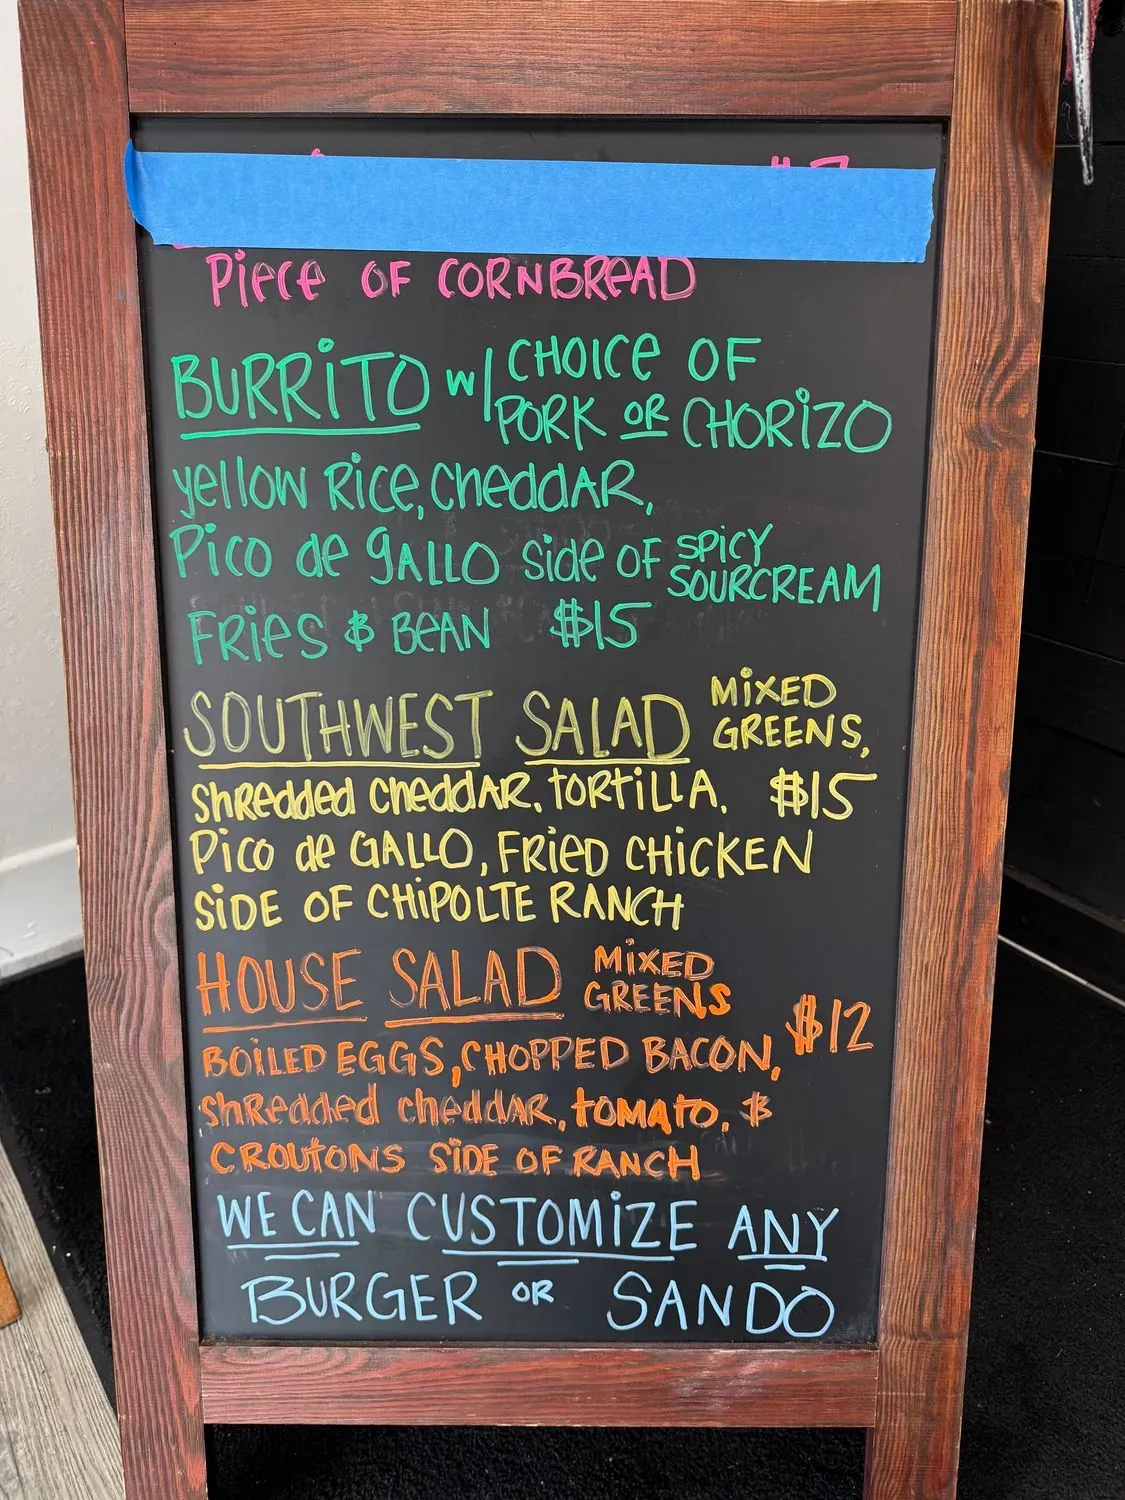 Piece OF CORNBREAD
BURRITO w/ CHOICE OF
PORK OR CHORIZO
yellow Rice, Cheddar,
Pico de gallo side of SPICY
SOURCREAM
FRIES & BEAN $15
SOUTHWEST SALAD MIXED
GREENS,
Shredded Cheddar, TORTILLA, $15
Pico de GALLO, FRIED CHICKEN
SIDE OF CHIPOLTE RANCH
HOUSE SALAD MIXED
GREENS
BOILED EGGS, CHOPPED BACON, $12
Shredded cheddar, TOMATO, &
CROUTONS SIDE OF RANCH
WE CAN CUSTOMIZE ANY
BURGER OR SANDO